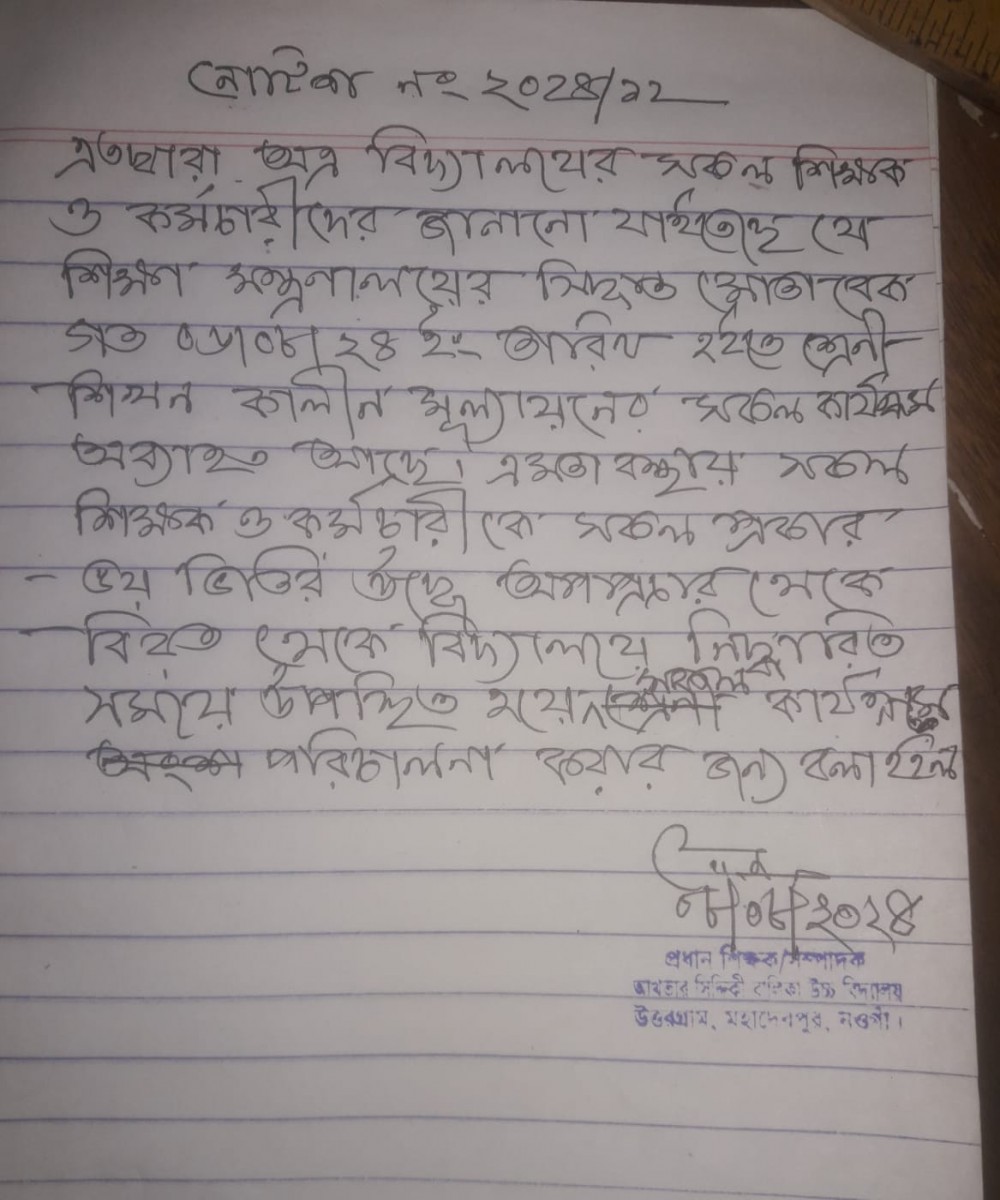 নোটিশ নং ২০২৪/১২
এতদ্বারা অত্র বিদ্যালয়ের সকল শিক্ষক
ও কর্মচারীদের জানানো যাইতেছে যে
শিক্ষা মন্ত্রনালয়ের সিদ্ধান্ত মোতাবেক
গত ০৬/০৮/২৪ ইং তারিখ হইতে শ্রেনী
শিখন কালীন মূল্যায়নের সকল কার্যক্রম
অব্যাহত আছে। এমতাবস্থায় সকল
শিক্ষক ও কর্মচারী কে সকল প্রকার
ভয় ভিতির উর্দ্ধে অপপ্রচার থেকে
বিরত থেকে বিদ্যালয়ে নির্দ্ধারিত
সময়ে উপস্থিত হয়ে সকল কার্যক্রম
পরিচালনা করার জন্য বলা হইল
০৮/০৮/২০২৪
প্রধান শিক্ষক/সম্পাদক
বালিকা উচ্চ বিদ্যালয়
উত্তরগ্রাম, মহাদেবপুর, নওগাঁ।